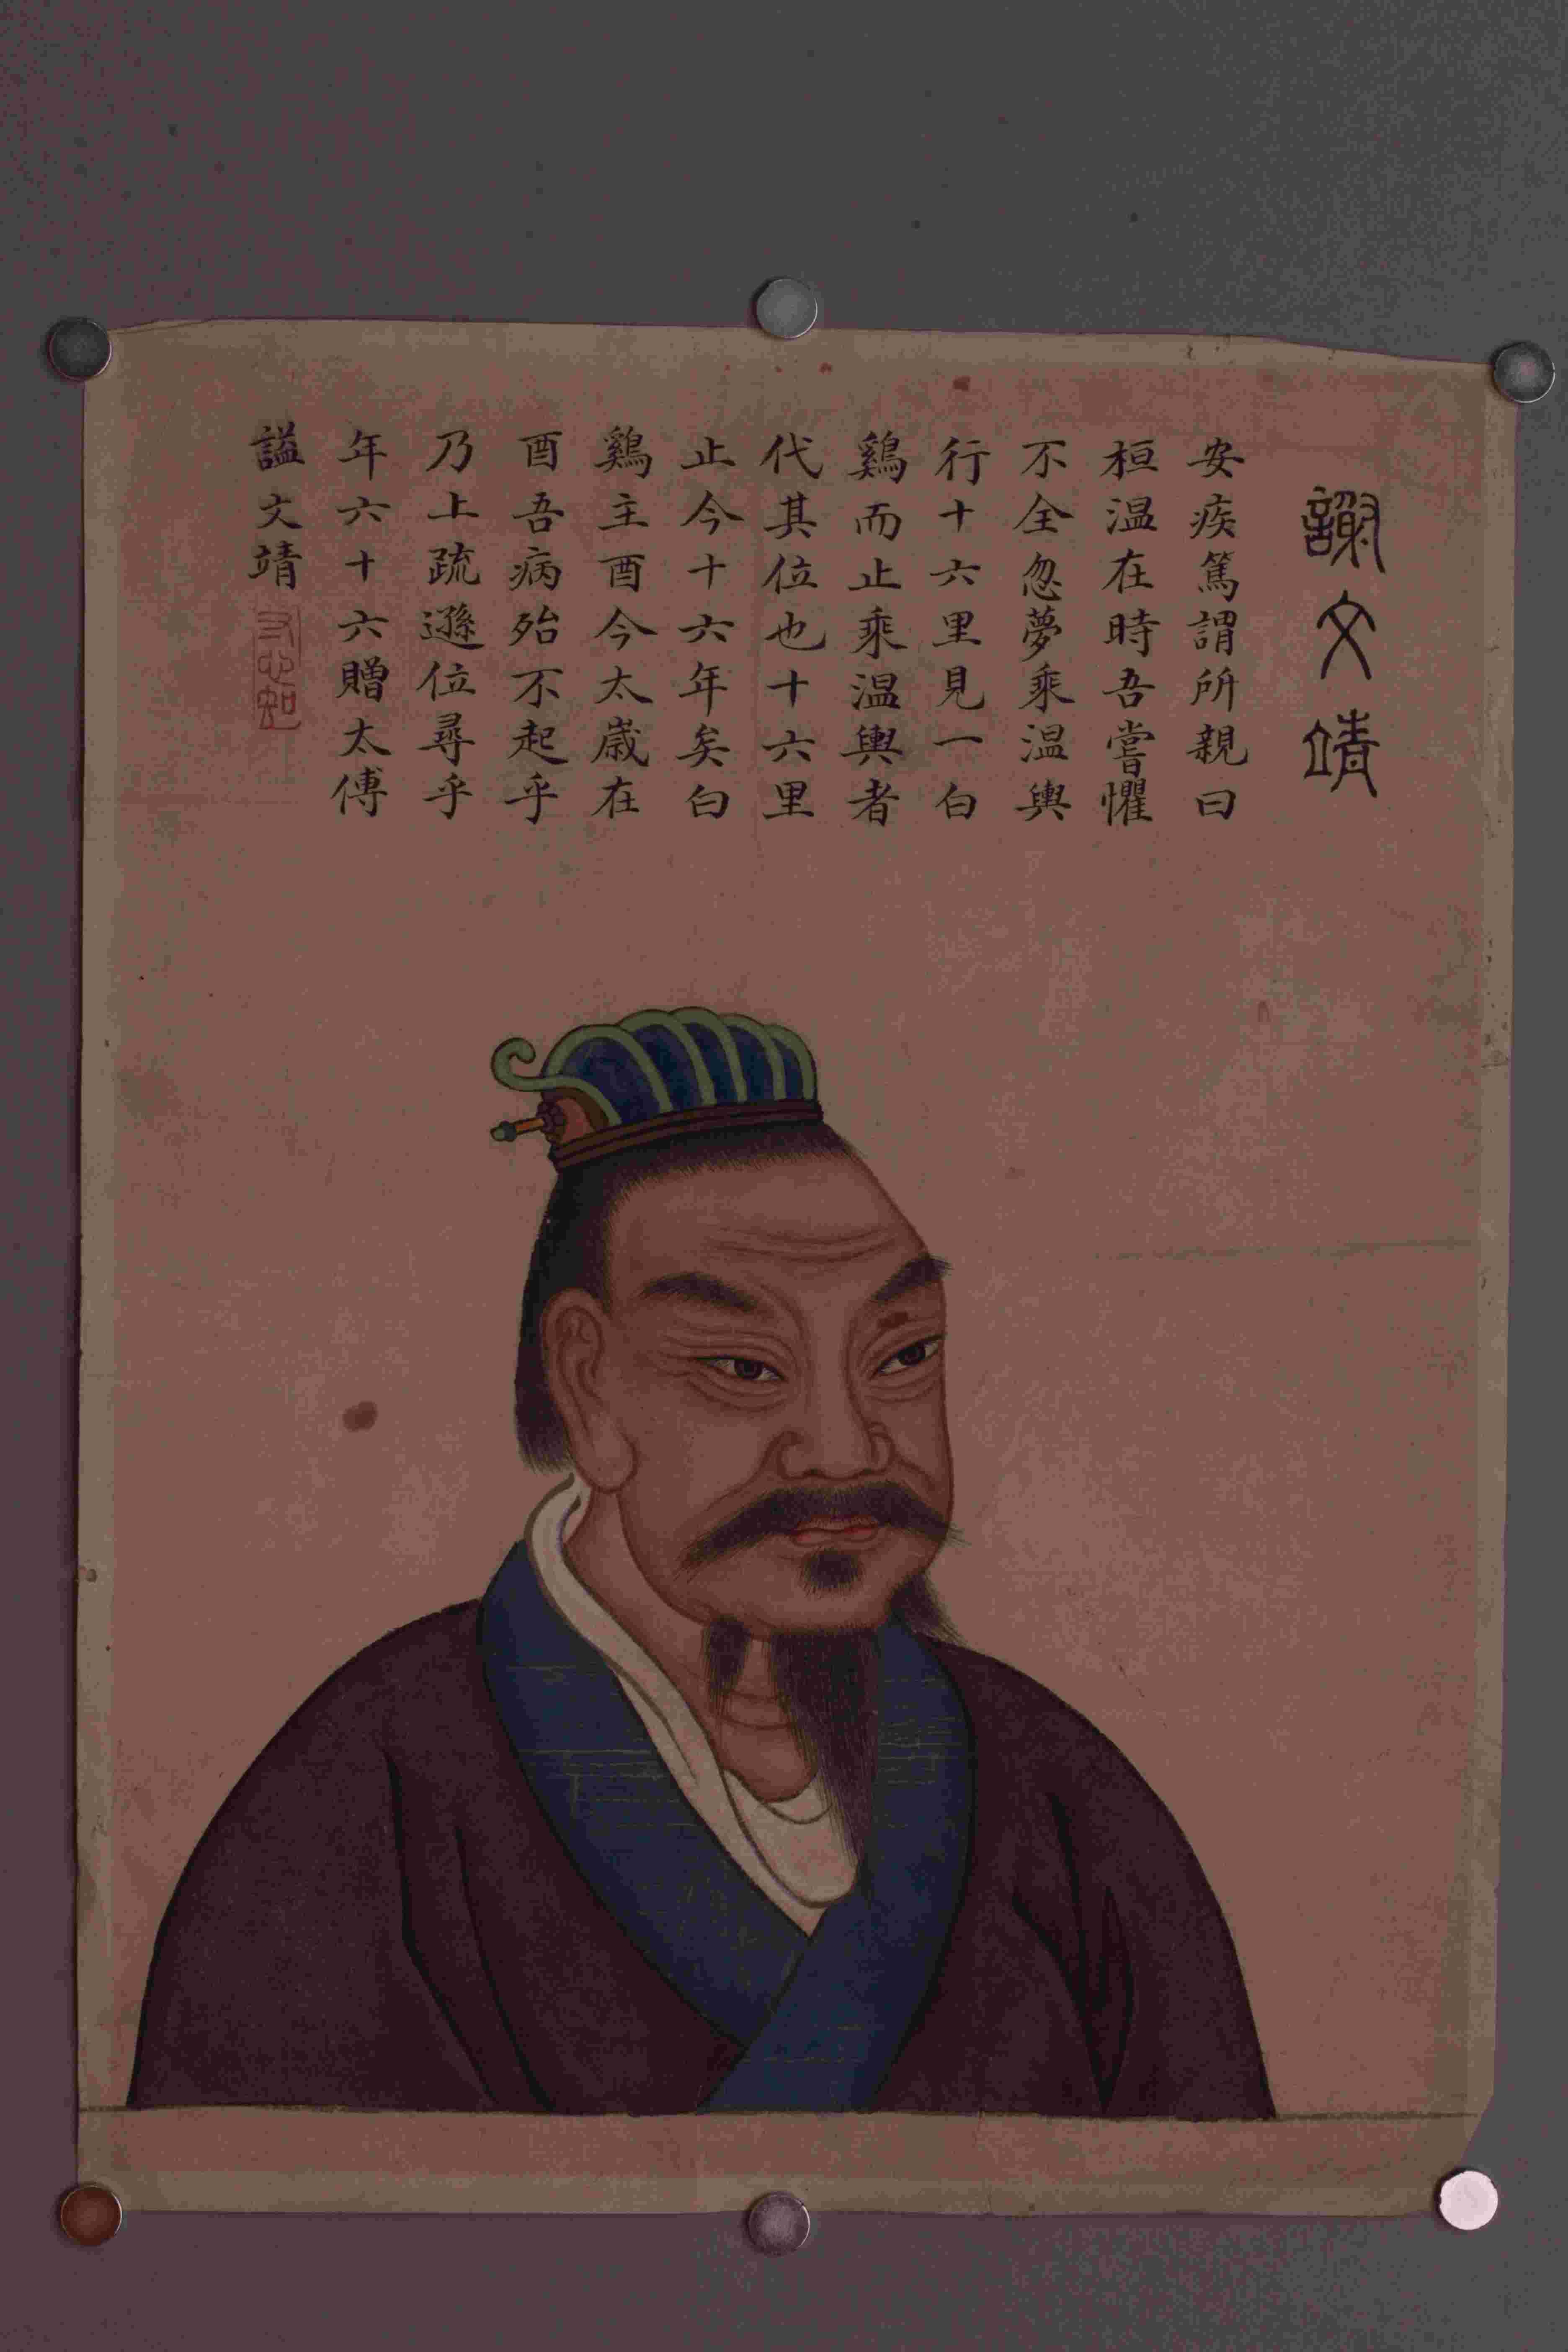 謝文靖
安疾篤謂所親曰
桓温在時吾嘗懼
不全忽夢乘温輿
行十六里見一白
鷄而止乘温輿者
代其位也十六里
止今十六年矣白
鷄主酉今太歲在
酉吾病殆不起乎
乃上疏遜位尋乎
年六十六贈太傅
謚文靖